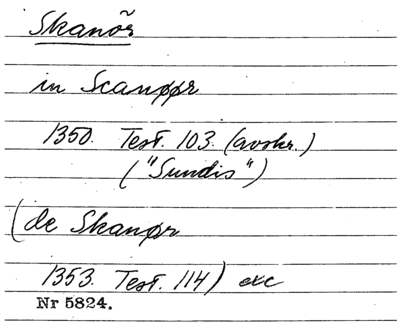 Skanör
in Scanøør
1350. Test. 103. (avskr.)
("Sundis")
(de Skanør
1353. Test. 114) exc
Nr 5824.